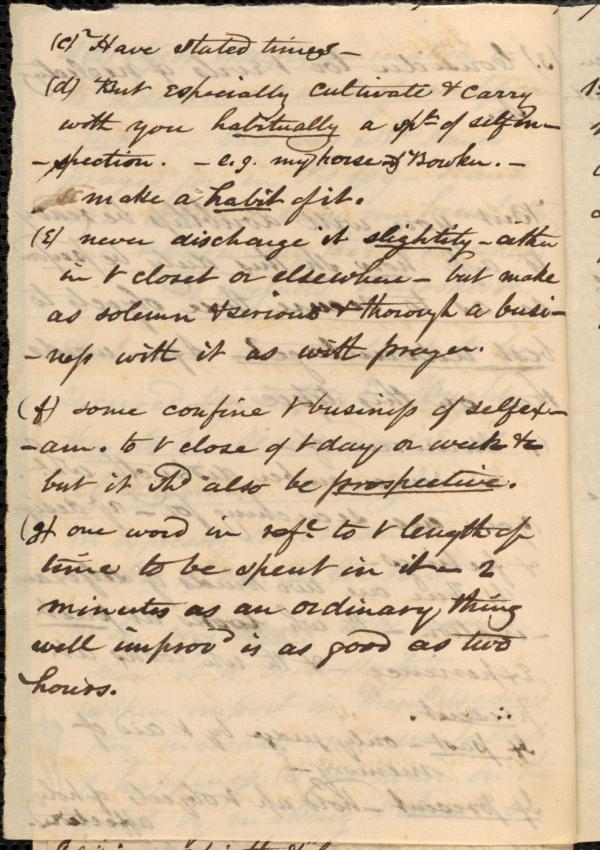 (c) Have stated times –
(d) But especially cultivate & carry
with you habitually a spt. of selfin-
-spection. – e.g. my horse & Bowker. –
make a habit of it.
(E) never discharge it slightily – either
in t closet or elsewhere – but make
as solemn & serious & thorough a busi-
-ness with it as with prayer.
(f) some confine t business of selfex-
-am. to t close of t day or week &c
but it shd also be prospective.
(g) one word in refce to t length of
time to be spent in it – 2
minutes as an ordinary thing
well improvd is as good as two
hours.